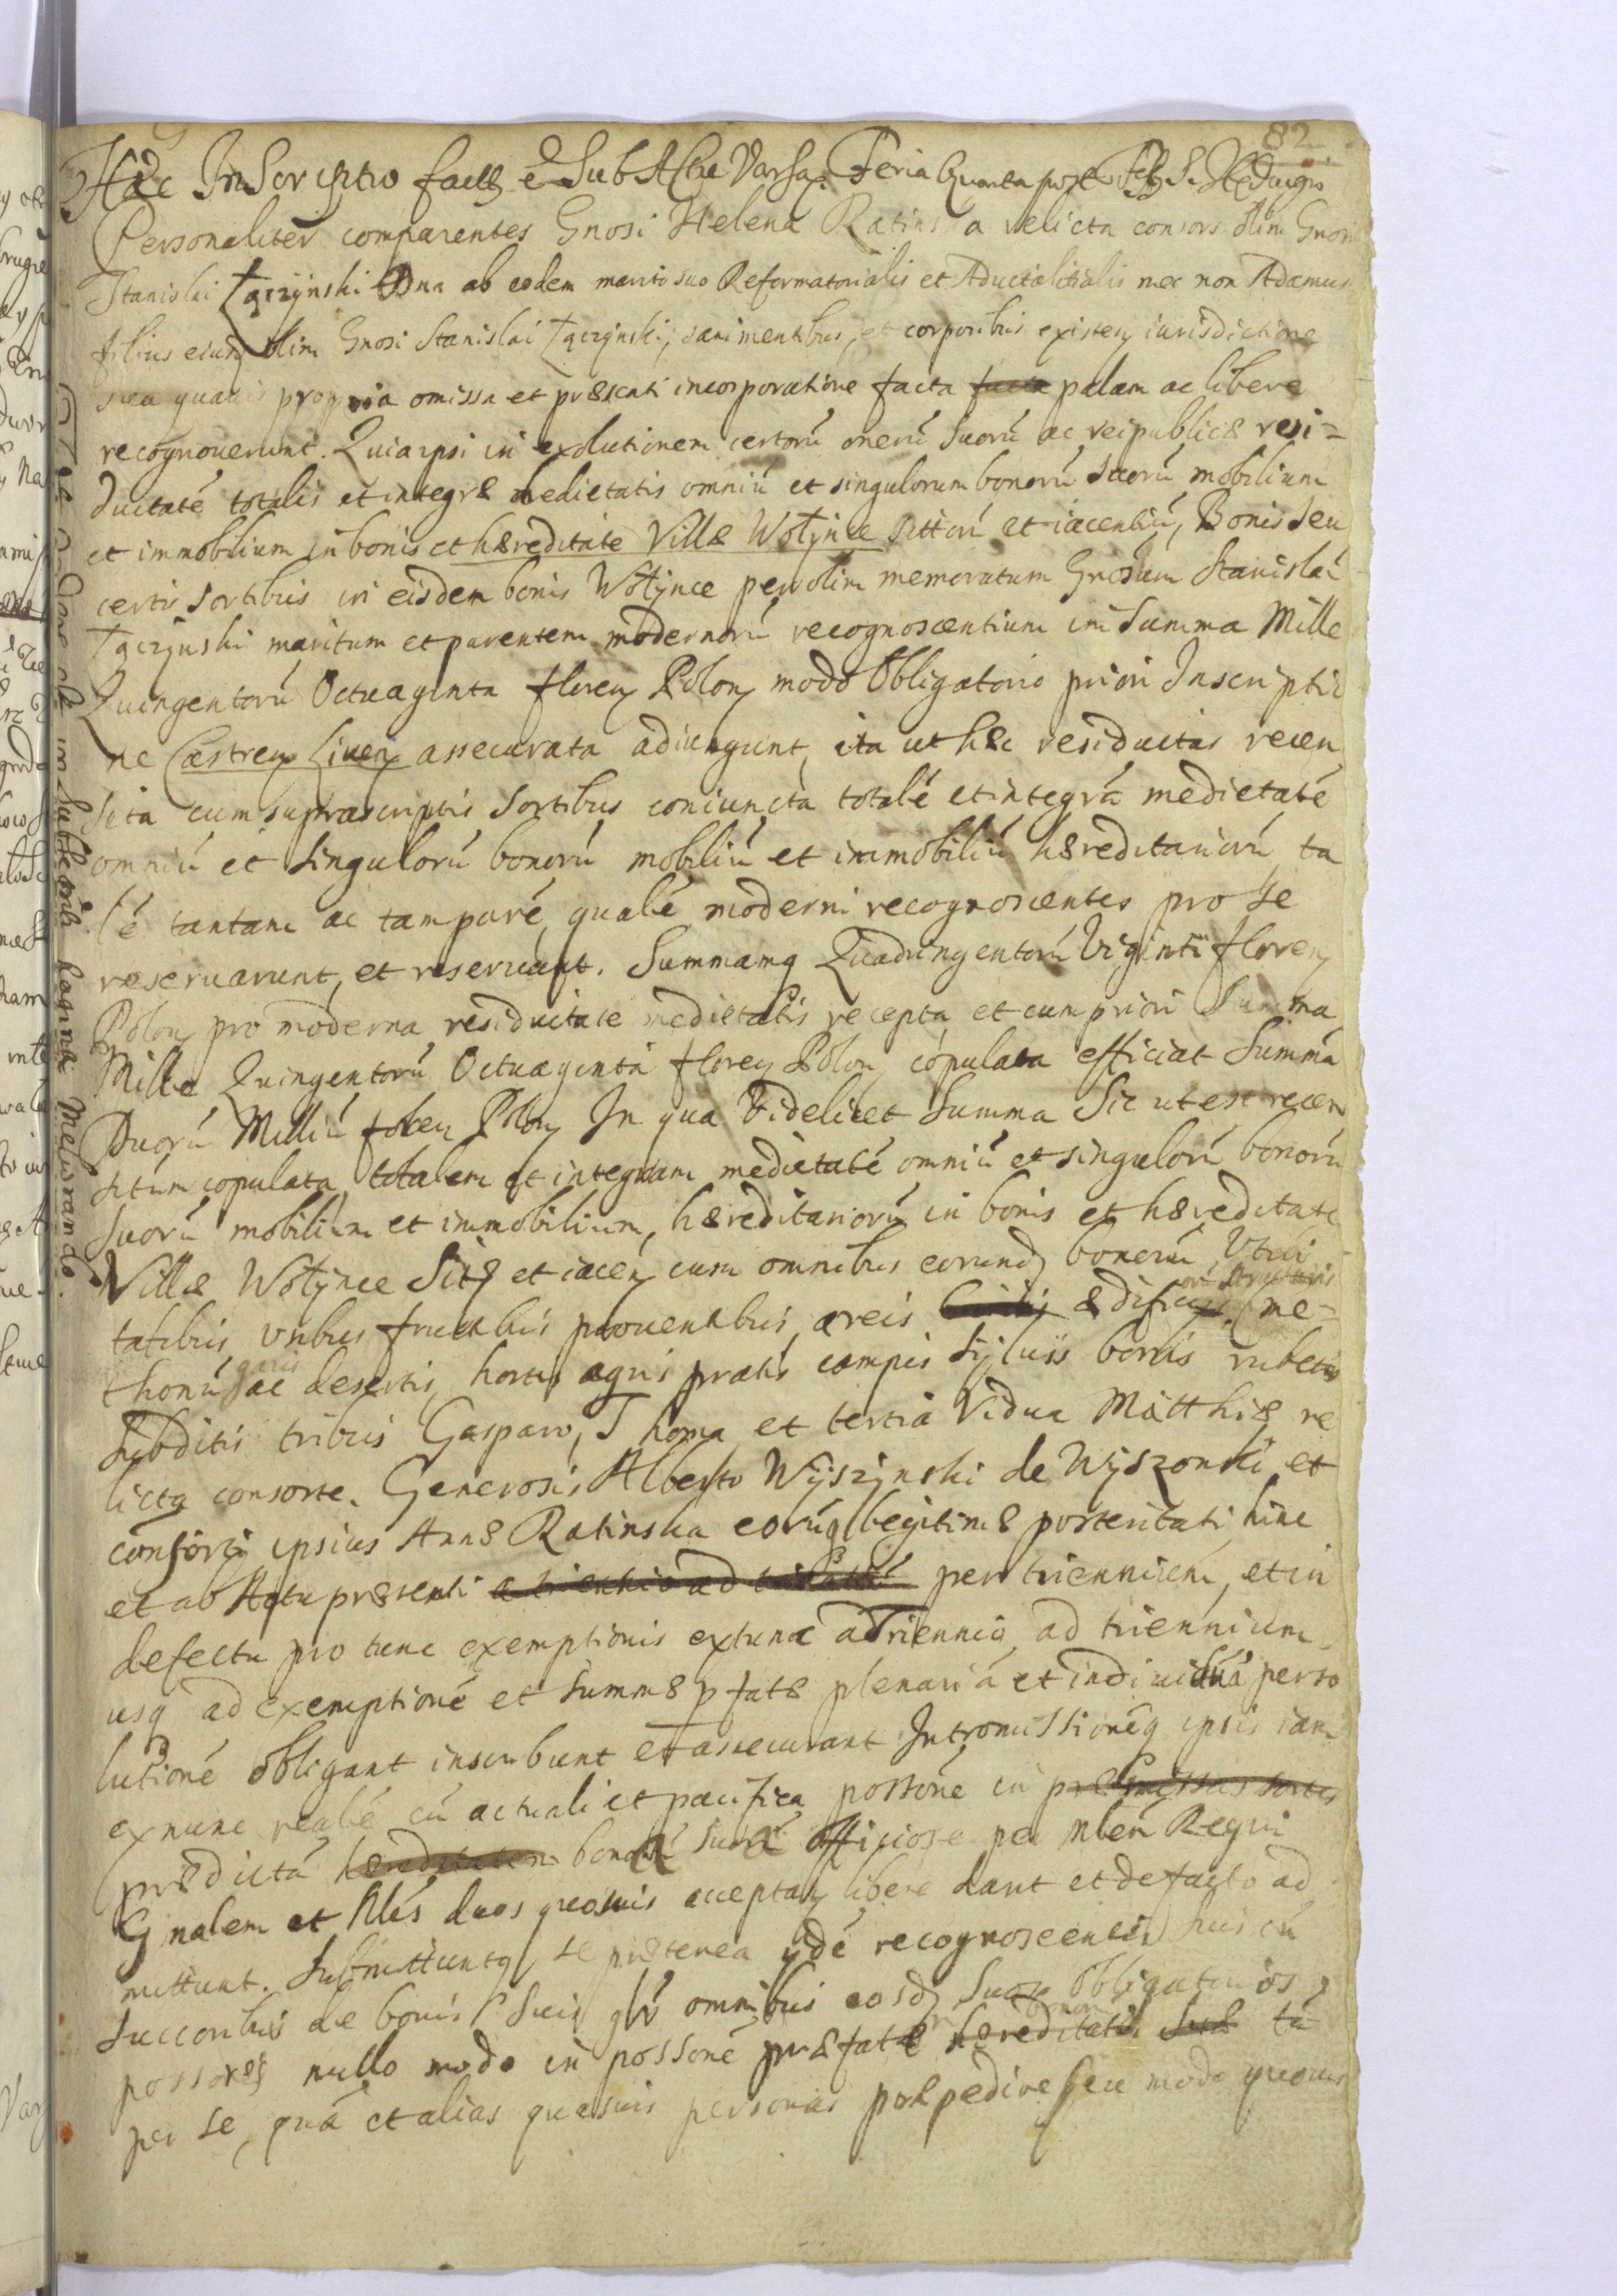 82
Hæc Inscriptio facta e Sub Actu Varsa. Feria Quarta post Fest S. Hedvigis
Personaliter comparentes Gnosi Helena Ratinska relicta consors olim Gnosi
Stanislai Łączÿnski Dna ab eodem marito suo Reformatorialis et Aduitalitialis nec non Adamus
filius eiusd olim Gnosi Stanislai Łączÿnski, sani mentibus, et corporibus existen iurisdictione
sua quauis propria omissa et præsenti incorporatione facta facta palam ac libere
recognouerunt. Quia ipsi in exolutionem certorũ onerũ suorũ ac reipublicæ resi=
duitatẽ totalis et integræ medietatis omniũ et singulorum bonorũ suorũ mobilium
et immobilium in bonis et hæreditate Villæ Wołÿnce sittorũ et iacentiũ, Bonis seu
certis sortibus in eisdem bonis Wołÿnce per olim memoratum Gnosum Stanislaũ
Łączÿnski maritum et parentem modernorũ recognoscentium in Summa Mille
Quingentorũ Octuaginta floren Polon modo Obligatorio priori Inscriptio
ne Castren Liuen assecurata adiungunt, ita ut hæc residuitas recen
sita cum suprascriptis sortibus coniuncta totalẽ et integrã medietatẽ
omniũ et singulorũ bonorũ mobiliũ et immobiliũ hæreditariorũ ta
lẽ tantam ac tam purẽ qualẽ moderni recognoscentes pro se
reseruarunt, et reseruant. Summamq Quadringentorũ Viginti floren
Polon pro moderna residuitate medietatis recepta et cum priori Summa
Mille Quingentorũ Octuaginta floren Polon copulata efficiat Summã
Duorũ Milliũ floren Polon In qua videlicet Summa Sic ut est recen
situm copulata totalem et integram medietatẽ omniũ et singulorũ bonorũ
suorũ mobilium et immobilium, hæreditariorũ in bonis et hæreditate
Villæ Wołÿnce Sitis et iacen cum omnibus eorund bonorũ Vtili
tatibus usibus fructibus prouentibus areis ædificijs
thonũ ac desertis, hortis agris pratis campis sÿluis boris rubetis
subditis tribus Gasparo, Thoma et tertia Vidua Matthiæ re
licta consorte. Generosis Alberto Wÿszÿnski de Wÿszonki et
consorti ipsius Annæ Ratinska eorũq legitimæ posteritati hinc
et ab Actu præsenti a triennio ad triennium per triennium, et in
defectu pro tunc exemptionis extunc a Triennio ad triennium
usq ad exemptionẽ et summæ pfatæ plenariã et indiuiduã perso
lutionẽ obligant inscribunt et assecurant Intromissionẽq ipsis iam
ex nunc realẽ cũ actuali et pacifica possonẽ in præmissas sortes
prædictã hæreditatem bonorũ suorũ officiose per Mlem Regni
Gnalem et Nles duos quosuis acceptan libere dant et de facto ad
mittunt. Submittuntq se præterea ydẽ recognoscentes suis cũ
succoribus de bonis suis glr omnibus eosd suos obligatorios
possores nullo modo in possonẽ præfatæ hæreditatis suæ tã
per se, quã et alias quasuis personas præpedire seu modo quouis